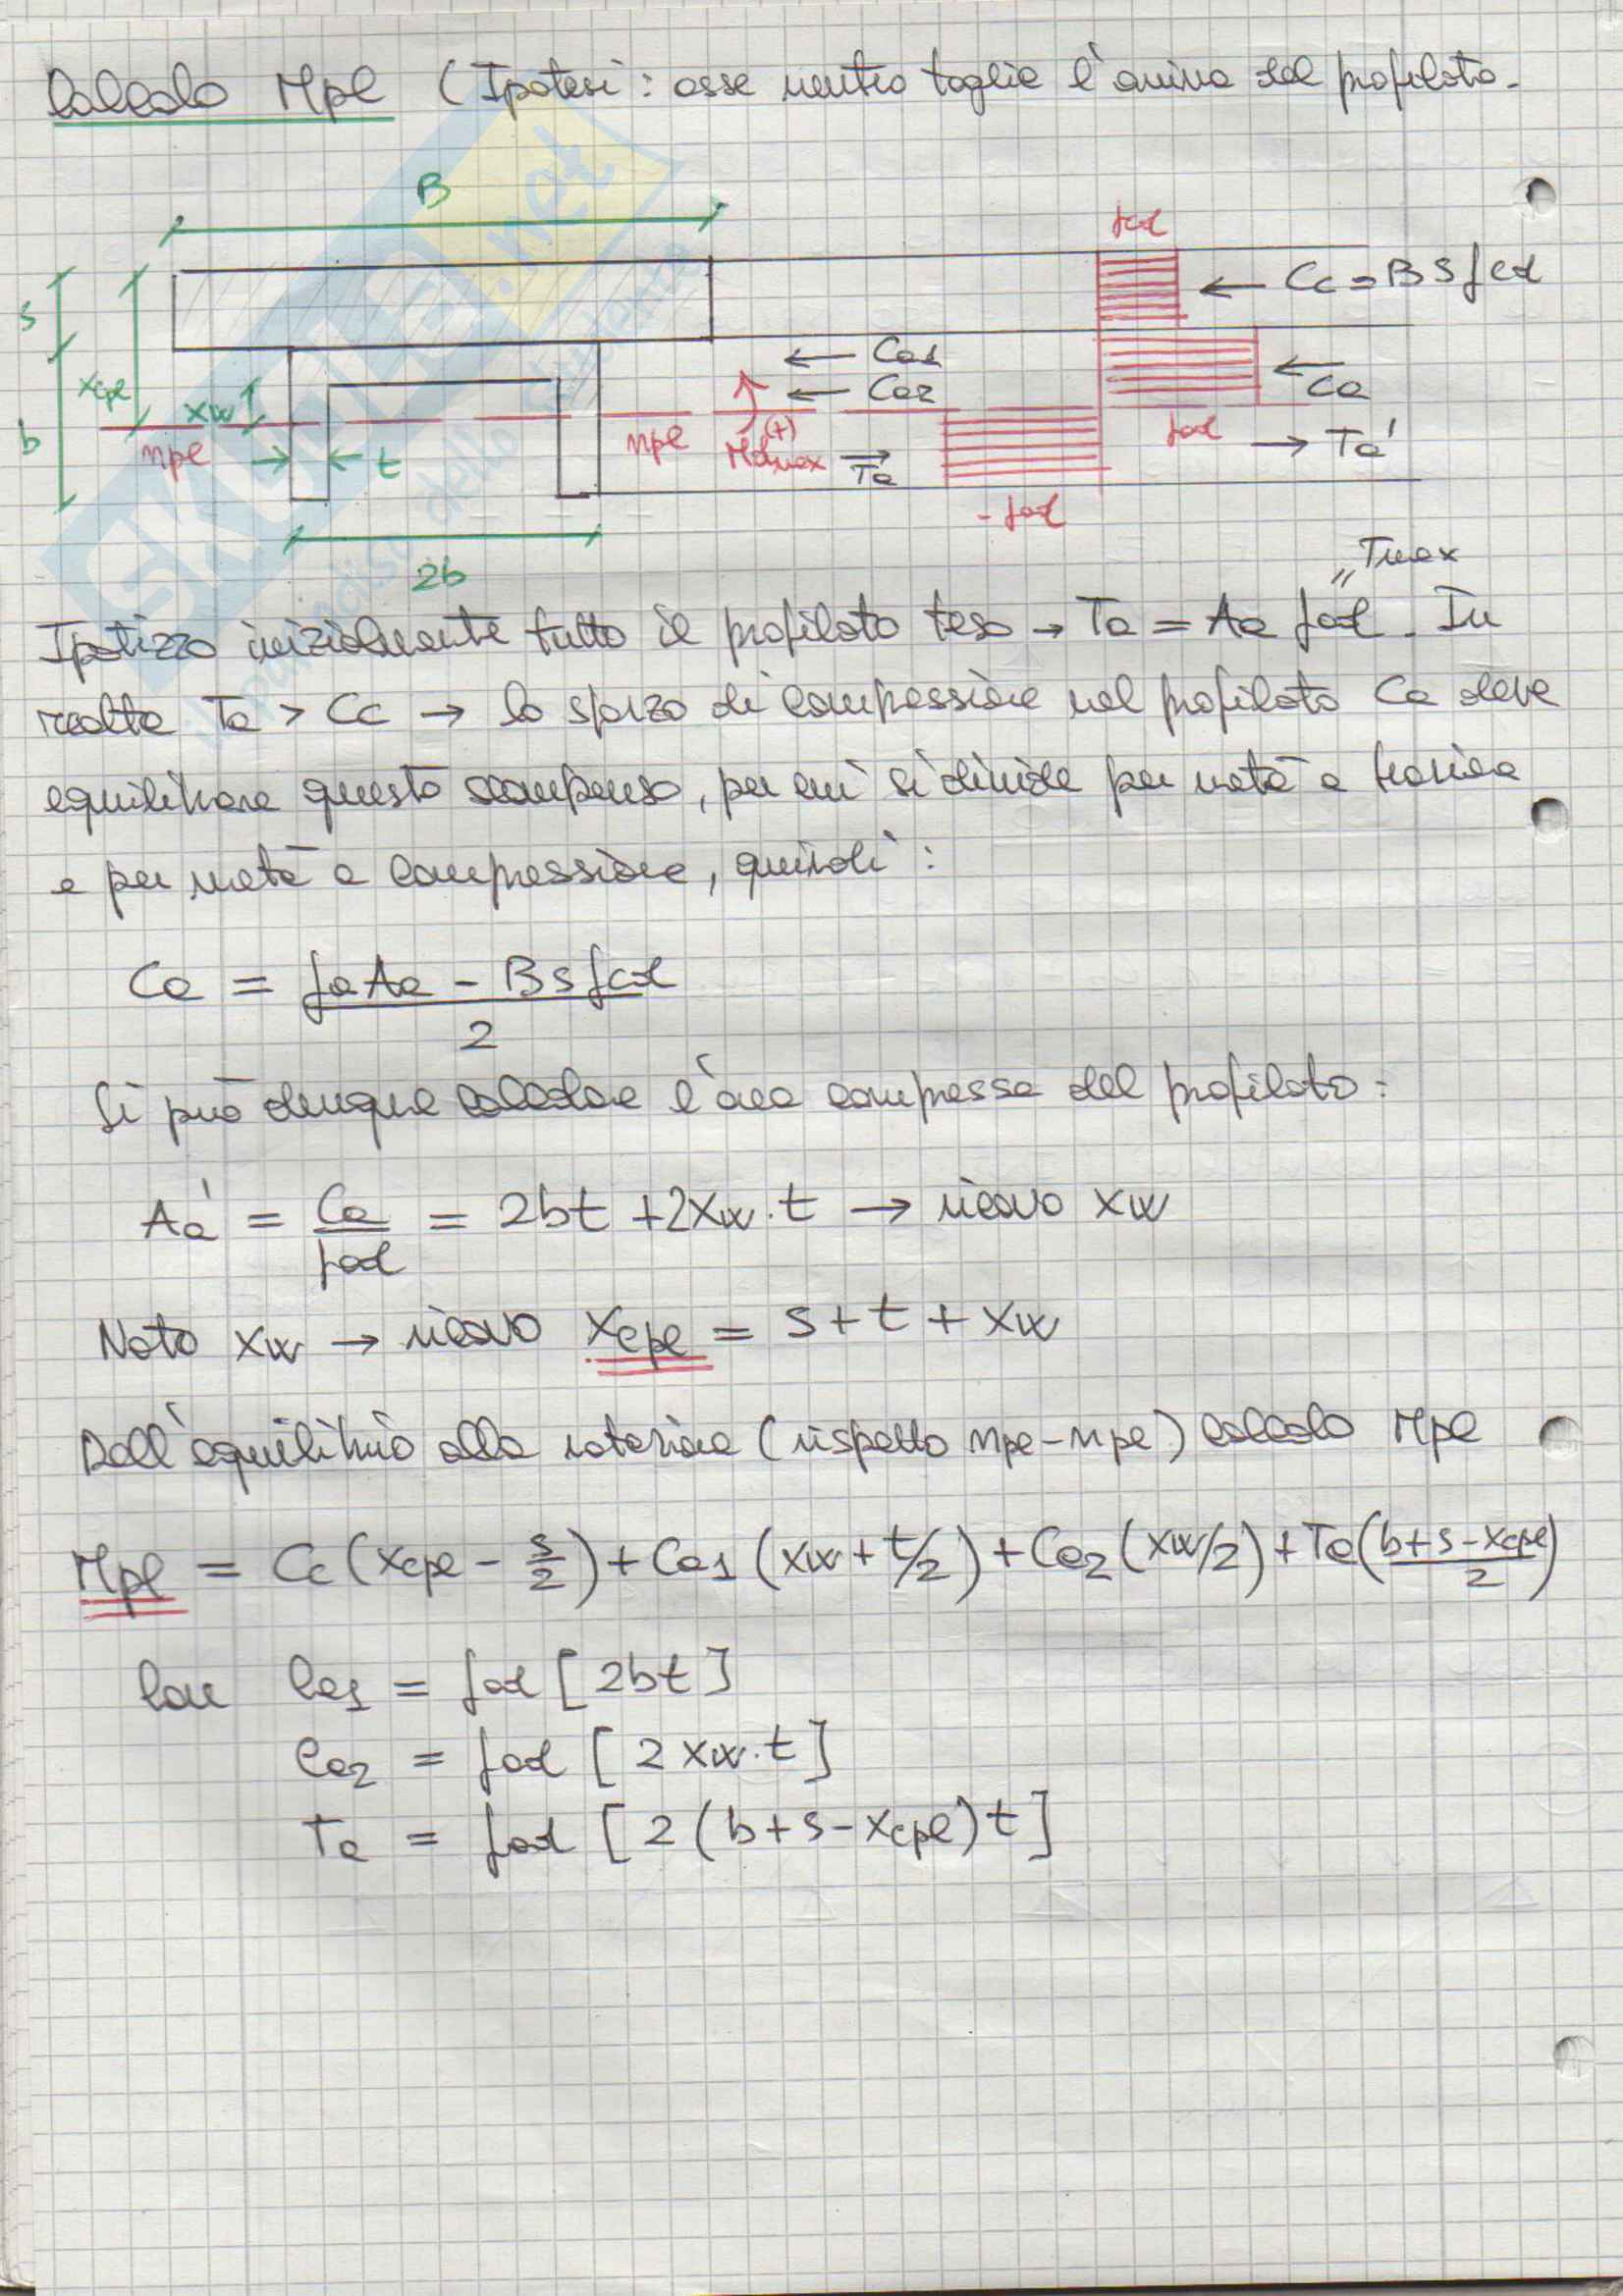 Calcolo Mpl (Ipotesi: asse neutro taglia l'anima del profilato.
B
fcd
Cc = B s fcd
s
xcpl
b
xw
npl
t
2b
npl
Mdmax
(+)
Ca1
Ca2
Ta
Ca
fad
Ta'
- fad
" Tmax
Ipotizzo inizialmente tutto il profilato teso → Ta = Aa fad. In
realtà Ta > Cc → lo sforzo di compressione nel profilato Ca deve
equilibrare questo scompenso, per cui si divide per metà a trazione
e per metà a compressione, quindi:
Ca = fa Aa - B s fcd
2
Si può dunque calcolare l'area compressa del profilato:
Aa' = Ca / fad = 2bt + 2xw · t → ricavo xw
Noto xw → ricavo xcpl = s + t + xw
Dall'equilibrio alla rotazione (rispetto npl-npl) calcolo Mpl
Mpl = Cc (xcpl - s/2) + Ca1 (xw + t/2) + Ca2 (xw/2) + Ta ((b+s-xcpl)/2)
Con Ca1 = fad [2bt]
Ca2 = fad [2 xw · t]
Ta = fad [2 (b+s-xcpl) t]